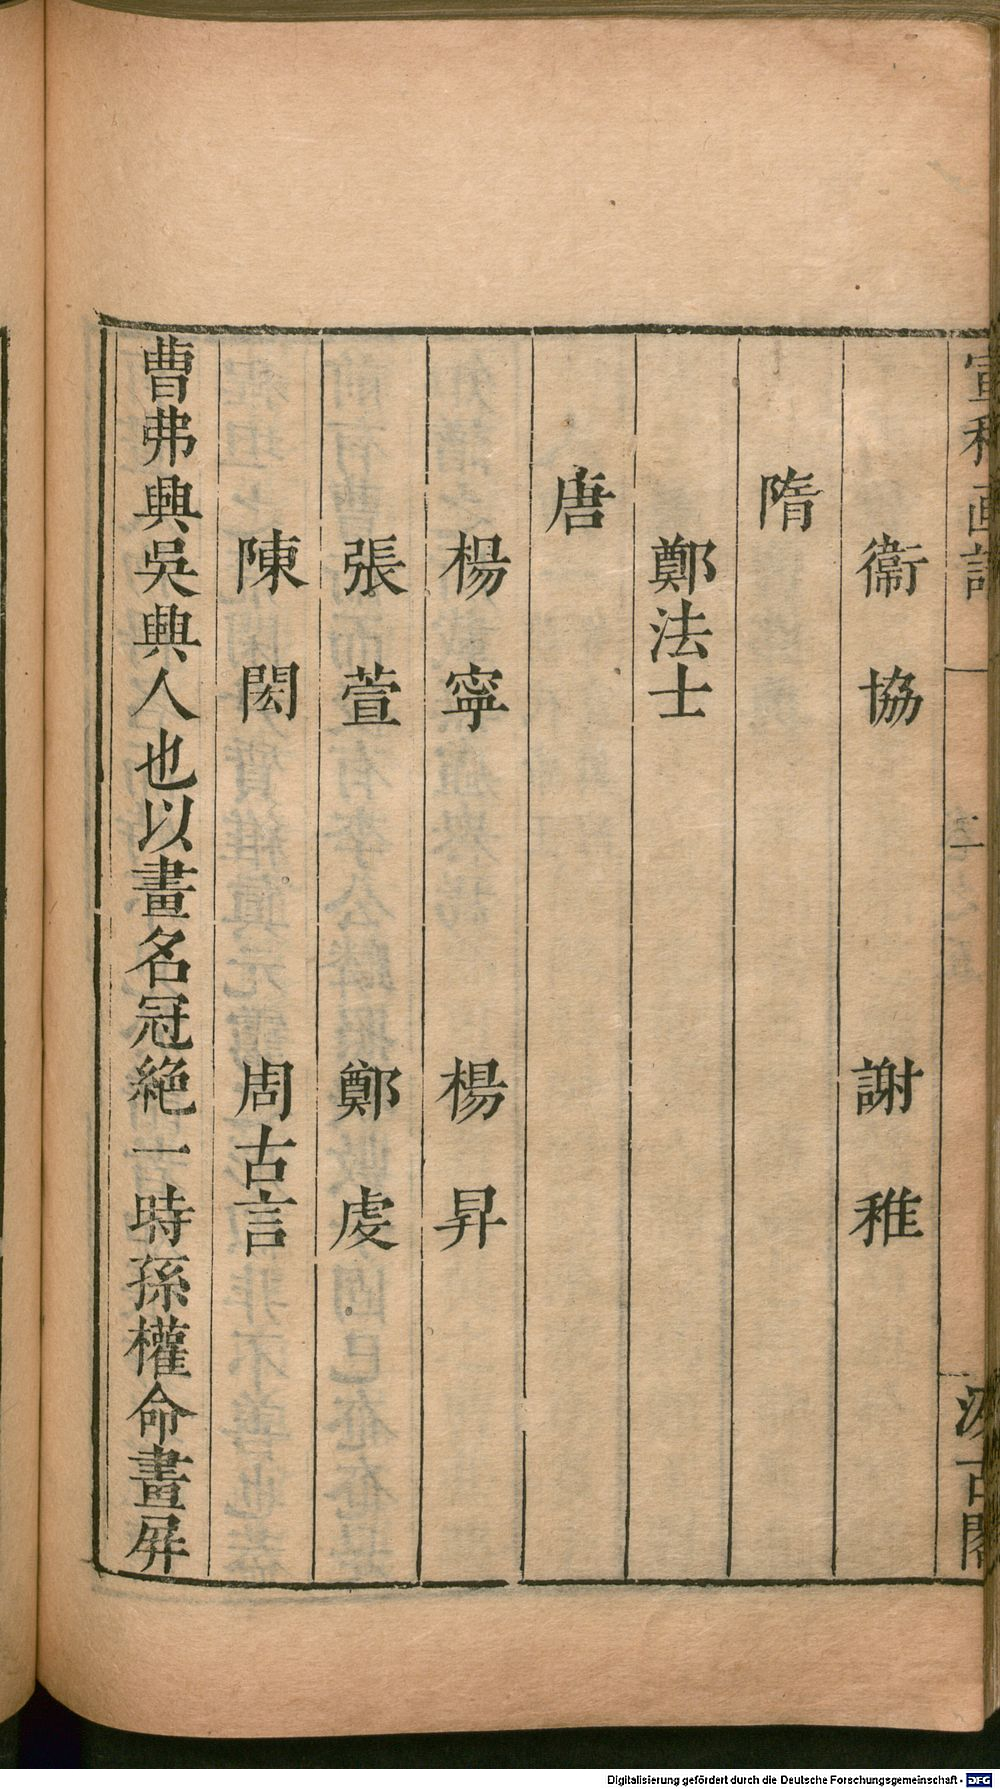 宣和画譜 一 二 汲古閣
衞協 謝稚
隋
鄭法士
唐
楊寧 楊昇
張萱 鄭虔
陳閎 周古言
曹弗興吳興人也以畫名冠絶一時孫權命畫屏
Digitalisierung gefördert durch die Deutsche Forschungsgemeinschaft - DFG